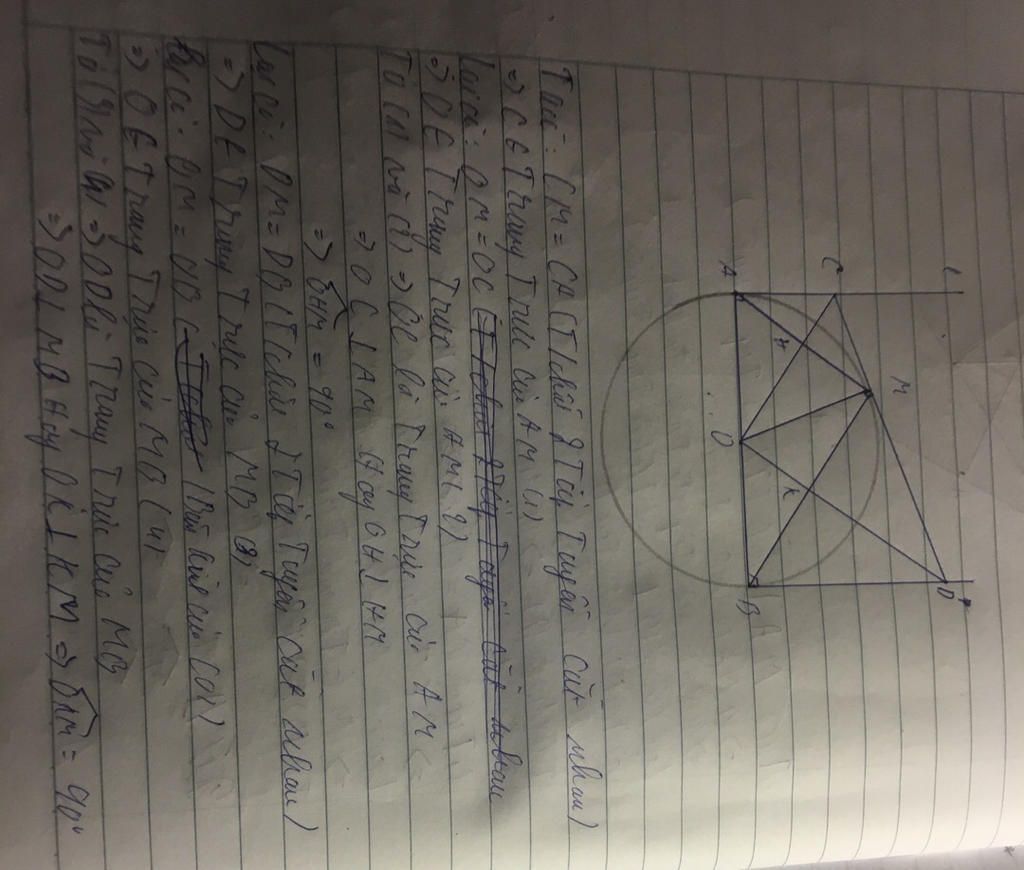 C
M
D
H
K
A
O
B
Ta có: CM = CA (T/chất 2 Tiếp Tuyến cắt nhau)
=> C ∈ Trung Trực của AM (1)
Lại có: OM = OC
=> O ∈ Trung Trực của AM (2)
Từ (1) và (2) => OC là Trung Trực của AM
=> OC ⊥ AM Hay OH ⊥ HM
=> OHM = 90°
Lại có: DM = DB (T/chất 2 Tiếp Tuyến cắt nhau)
=> D ∈ Trung Trực của MB (3)
Lại có: OM = OB (Bán kính của (O))
=> O ∈ Trung Trực của MB (4)
Từ (3) và (4) => OD là Trung Trực của MB
=> OD ⊥ MB Hay OK ⊥ KM => OKM = 90°